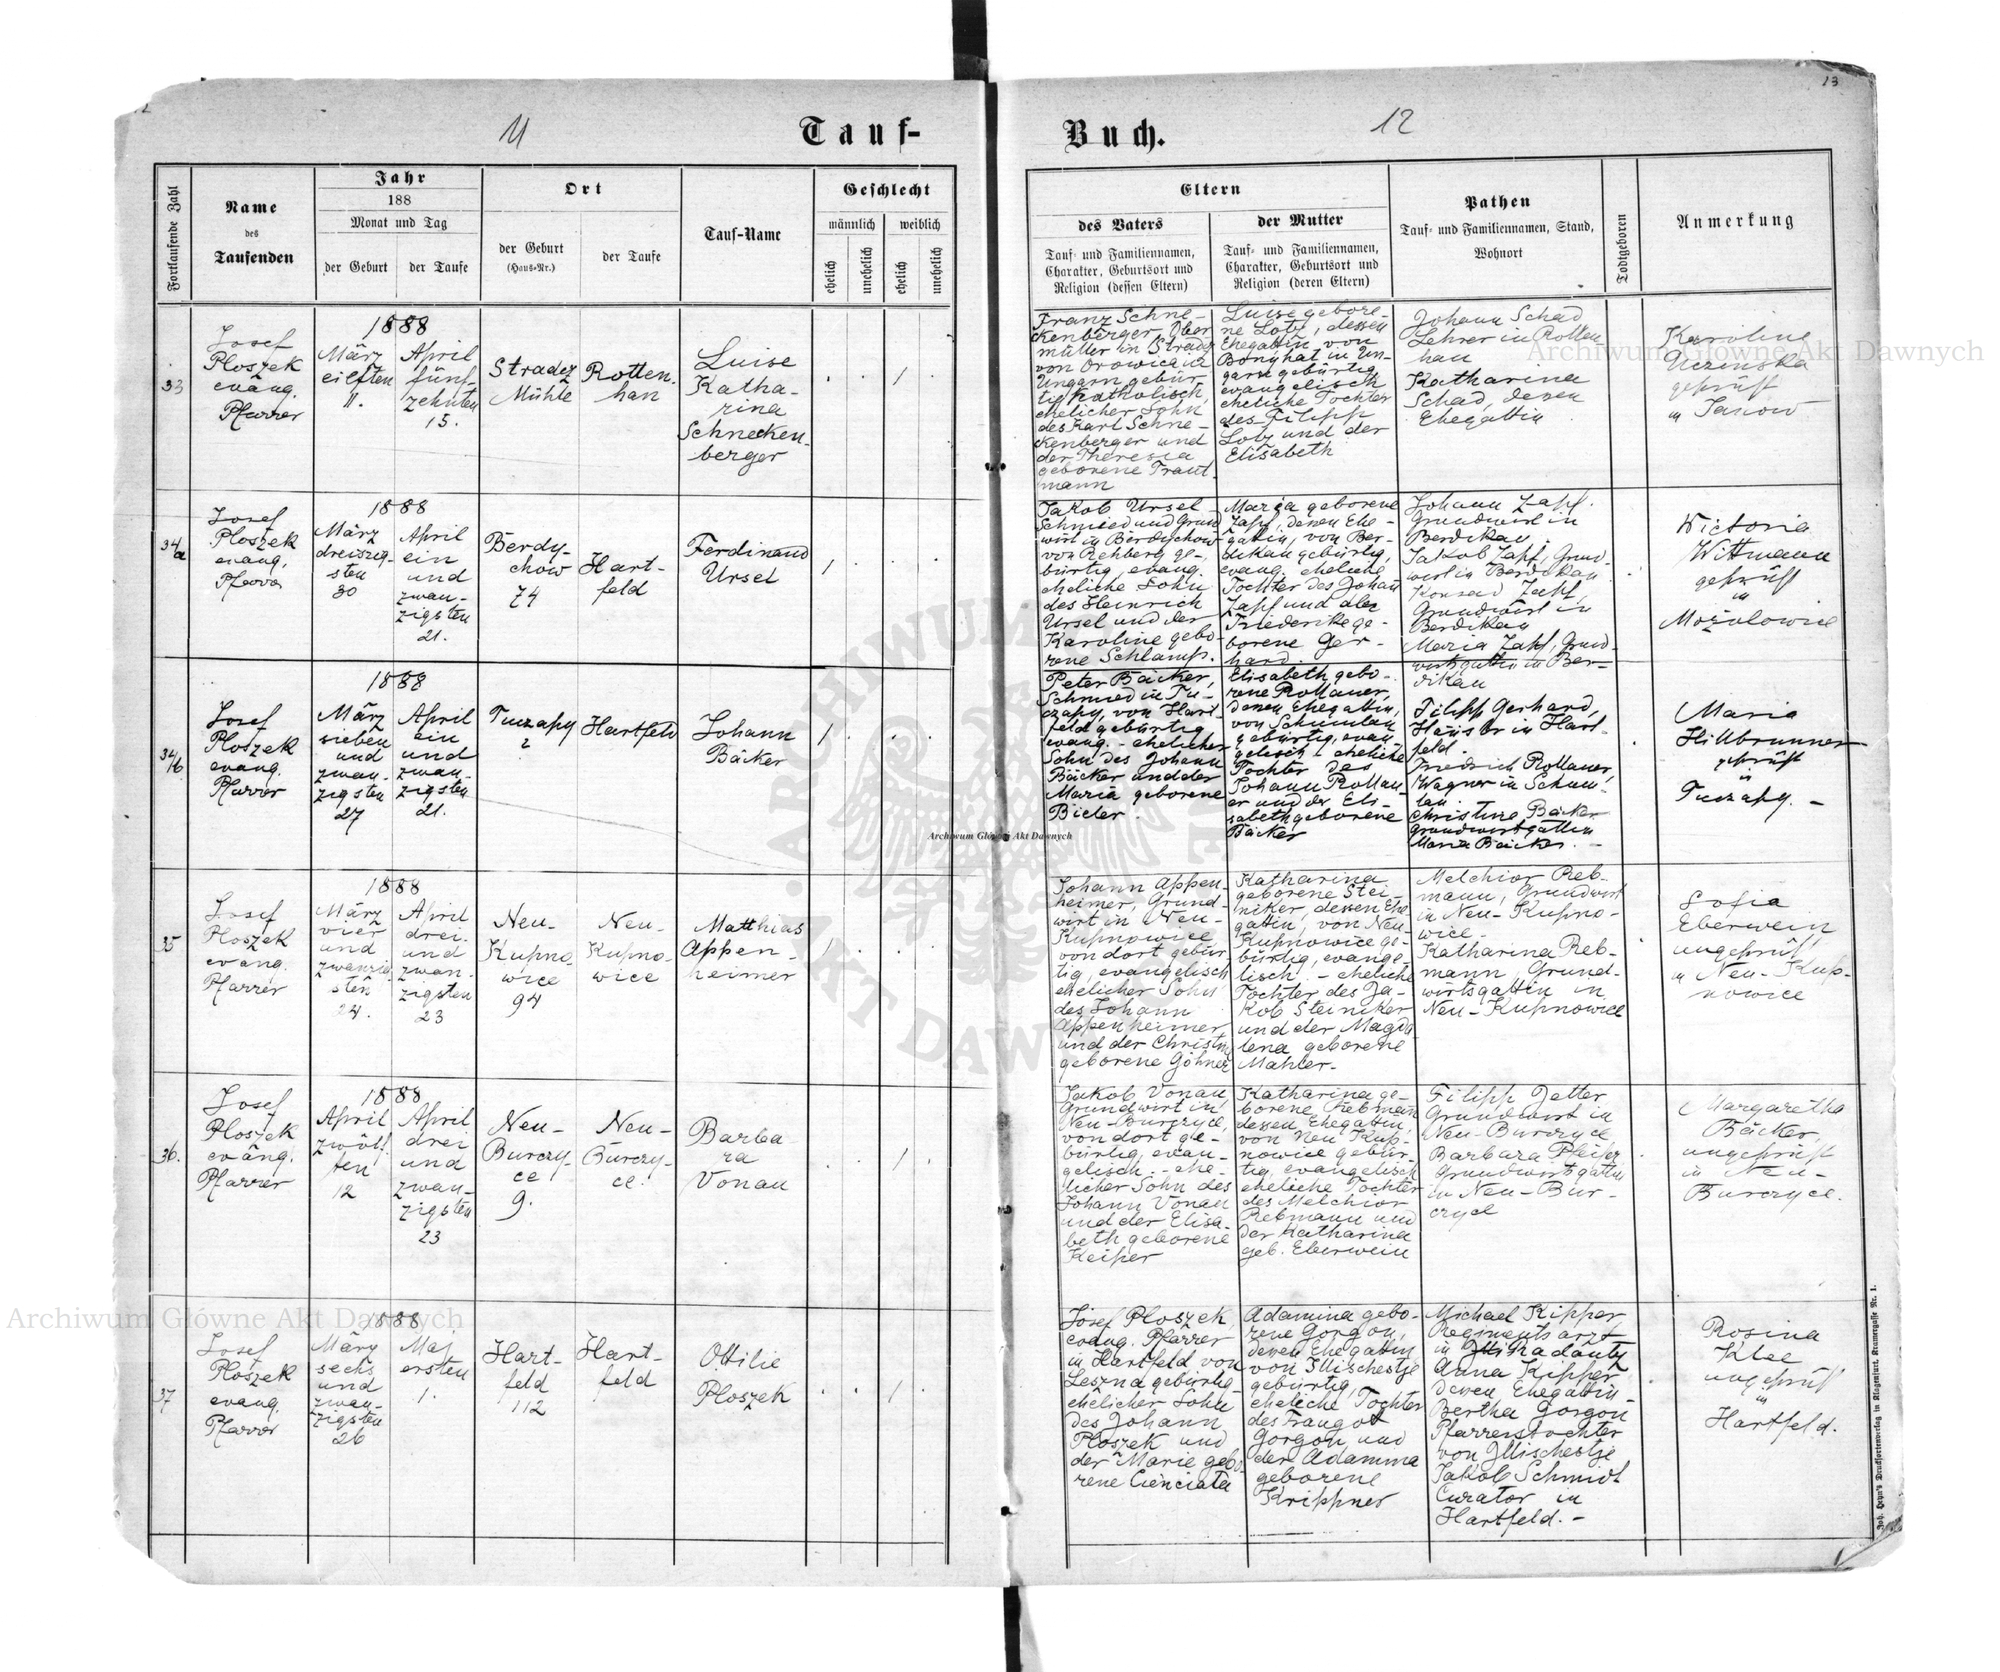 11
12
13
Tauf-
Buch.
Fortlaufende Zahl
Name
des
Taufenden
Jahr
188
Monat und Tag
der Geburt
der Taufe
Ort
der Geburt
(Haus-Nr.)
der Taufe
Tauf-Name
Geschlecht
männlich
weiblich
ehelich
unehelich
ehelich
unehelich
Eltern
des Vaters
Tauf- und Familiennamen,
Charakter, Geburtsort und
Religion (dessen Eltern)
der Mutter
Tauf- und Familiennamen,
Charakter, Geburtsort und
Religion (deren Eltern)
Pathen
Tauf- und Familiennamen, Stand,
Wohnort
Todtgeboren
Anmerkung
33
Josef
Ploszek
evang.
Pfarrer
1888
März
eilften
11.
April
fünf-
zehnten
15.
Stradez
Mühle
Rotten-
han
Luise
Katha-
rina
Schnecken-
berger
1
Franz Schne-
ckenberger, Ober
müller in Stradz
von Orowica in
Ungarn gebür
tig, katholisch,
ehelicher Sohn
des Karl Schne-
ckenberger und
der Theresia
geborene Traut
mann
Luise gebore-
ne Lotz, dessen
Ehegattin von
Bonyhat in Un-
garn gebürtig
evangelisch
eheliche Tochter
des Filipp
Lotz und der
Elisabeth
Johann Schad
Lehrer in Rotten-
han
Katharina
Schad, deren
Ehegattin
Karoline
Uczinska
geprüft
in Janow
34/a
Josef
Ploszek
evang.
Pfarrer
1888
März
dreiszig-
sten
30
April
ein
und
zwan-
zigsten
21.
Berdy-
chow
74
Hart-
feld
Ferdinand
Ursel
1
Jakob Ursel
Schmied und Grund
wirt in Berdychow
von Rehberg ge-
bürtig, evang.
eheliche Sohn
des Heinrich
Ursel und der
Karoline gebo-
rene Schlamp.
Maria geborene
Zapf, denen Ehe-
gattin, von Ber-
dikau gebürtig,
evang. eheliche
Tochter des Johan
Zapf und der
Friederike ge-
borene Ger-
hard.
Johann Zapf.
Grundwirt in
Berdikau.
Jakob Zapf, Grund-
wirt in Berdikau
Konrad Zapf,
Grundwirt in
Berdikau
Maria Zapf, Grund-
wirtsgattin in Ber-
dikau
Wictoria
Wittmann
geprüft
in
Mozolowice
34/b
Josef
Ploszek
evang.
Pfarrer
1888
März
sieben
und
zwan-
zigsten
27
April
ein
und
zwan-
zigsten
21.
Tuczapy
Hartfeld
Johann
Bäcker
1
Peter Bäcker,
Schmied in Tu-
czapy, von Hart
feld gebürtig
evang. - ehelicher
Sohn des Johann
Bäcker und der
Maria geborene
Bieler.
Elisabeth gebo-
rene Rollauer,
denen Ehegattin,
von Schumlau
gebürtig, evan
gelisch - eheliche
Tochter des
Johann Rollau-
er und der Eli-
sabeth geborene
Bäcker
Filipp Gerhard,
Häusler in Hart-
feld.
Friedrich Rollauer,
Wagner in Schum-
lau.
Christine Bäcker
Grundwirtsgattin
Maria Bäcker. -
Maria
Hillbrunner
geprüft
in
Tuczapy. -
35
Josef
Ploszek
evang.
Pfarrer
1888
März
vier
und
zwanzig-
sten
24.
April
drei
und
zwan-
zigsten
23
Neu-
Kupno-
wice
94
Neu-
Kupno-
wice
Matthias
Appen-
heimer
1
Johann Appen-
heimer, Grund-
wirt in Neu-
Kupnowice
von dort gebür
tig, evangelisch
ehelicher Sohn
des Johann
Appenheimer,
und der Christine
geborene Göhner
Katharina
geborene Stei-
niker, dessen Ehe-
gattin, von Neu-
Kupnowice ge-
bürtig, evange-
lisch. - eheliche
Tochter des Ja-
kob Steiniker
und der Magda
lena geborene
Mahler.
Melchior Reb-
mann, Grundwirt
in Neu-Kupno-
wice.
Katharina Reb-
mann, Grund-
wirtsgattin in
Neu-Kupnowice
Sofia
Eberwein,
ungeprüft
in Neu-Kup-
nowice
36.
Josef
Ploszek
evang.
Pfarrer
1888
April
zwölf-
ten
12
April
drei
und
zwan-
zigsten
23
Neu-
Burczy-
ce
9.
Neu-
Burczy-
ce.
Barba
ra
Vonau
1
Jakob Vonau,
Grundwirt in
Neu-Burczyce,
von dort ge-
bürtig, evan-
gelisch. - ehe-
licher Sohn des
Johann Vonau
und der Elisa-
beth geborene
Keiper
Katharina ge-
borene Rebmann
dessen Ehegattin,
von Neu Kup-
nowice gebür-
tig, evangelisch
eheliche Tochter
des Melchior
Rebmann und
der Katharina
geb. Eberwein
Filipp Jetter
Grundwirt in
Neu-Burczyce
Barbara Pfeifer
Grundwirtsgattin
in Neu-Bur-
czyce
Margaretha
Bäcker,
ungeprüft
in Neu-
Burczyce.
37
Josef
Ploszek
evang.
Pfarrer
1888
März
sechs
und
zwan-
zigsten
26
Maj
ersten
1.
Hart-
feld
112
Hart-
feld
Ottilie
Ploszek
1
Josef Ploszek
evang. Pfarrer
in Hartfeld von
Leszna gebürtig
ehelicher Sohn
des Johann
Ploszek und
der Marie gebo-
rene Cienciala
Adamina gebo-
rene Gorgon,
deren Ehegattin
von Illischestje
gebürtig,
eheliche Tochter
des Traugott
Gorgon und
der Adamina
geborene
Krippner
Michael Kipper
Regimentsarzt
in Radautz
Anna Kipper
deren Ehegattin
Bertha Gorgon
Pfarrerstochter
von Illischestje
Jakob Schmidt
Curator in
Hartfeld. -
Rosina
Klee
ungeprüft
in
Hartfeld.
Joh. Heyn's Drucksortenverlag in Klagenfurt, Kramergasse Nr. 1.
Archiwum Główne Akt Dawnych
Archiwum Główne Akt Dawnych
Archiwum Główne Akt Dawnych